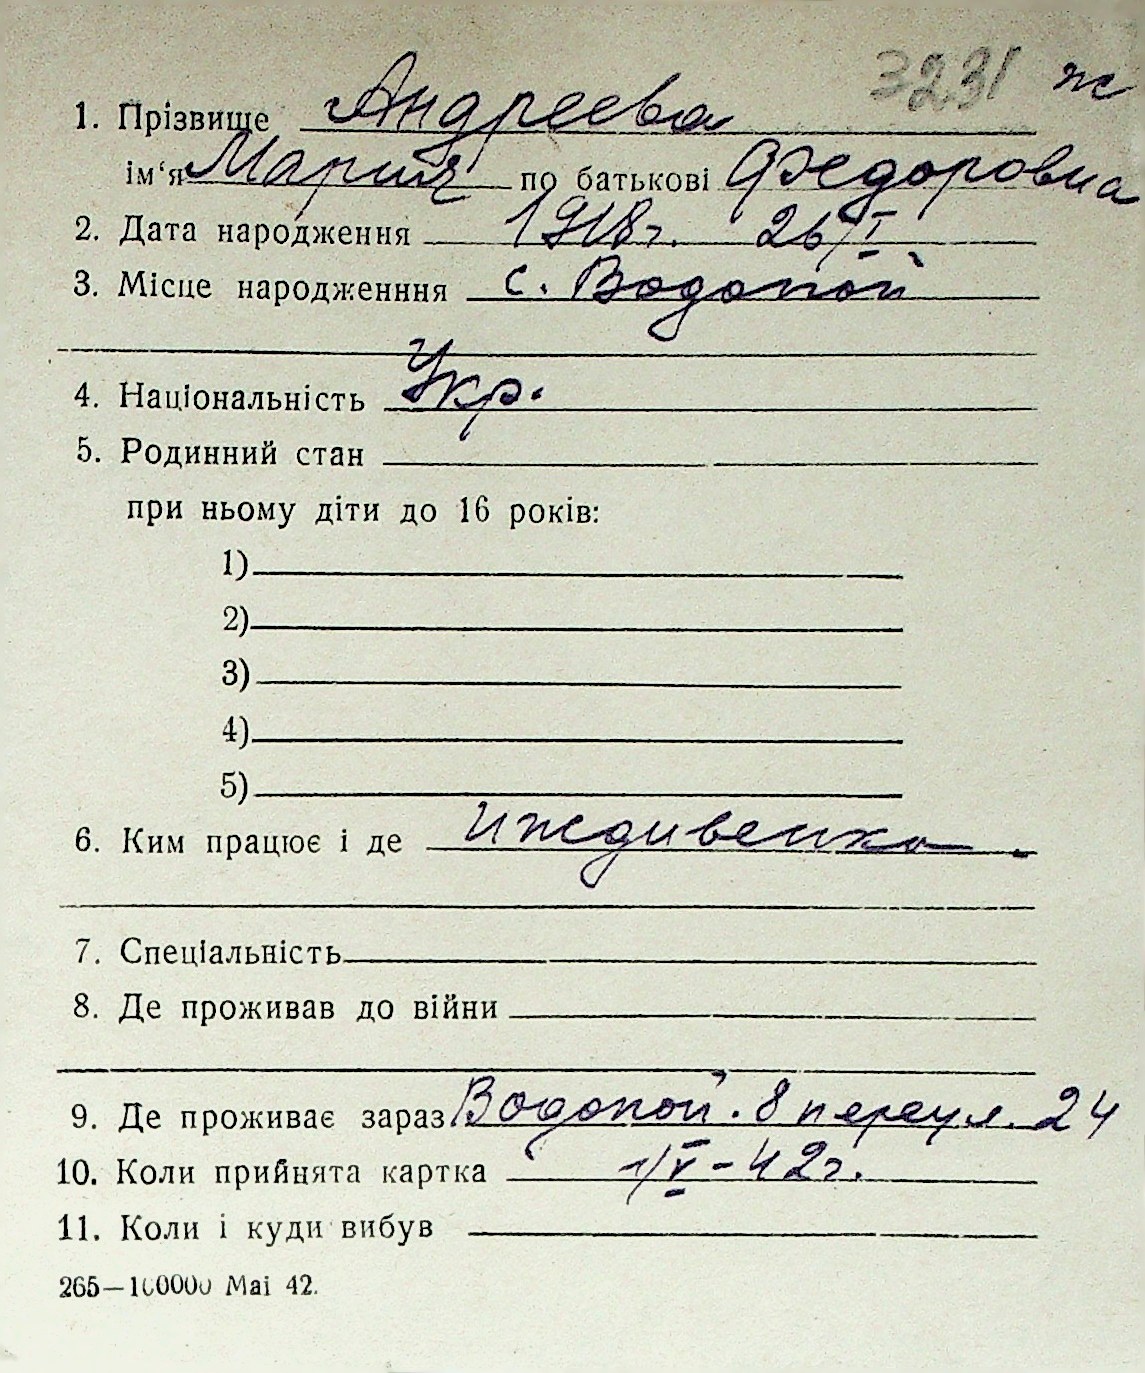 3231 ж
1. Прізвище Андреева
ім'я Мария по батькові Федоровна
2. Дата народження 1918г. 26/I
3. Місце народженння с. Водопой
4. Національність Укр.
5. Родинний стан
при ньому діти до 16 років:
1)
2)
3)
4)
5)
6. Ким працює і де иждивенка
7. Спеціальність
8. Де проживав до війни
9. Де проживає зараз Водопой. 8 переул. 24
10. Коли прийнята картка 1/V-42г.
11. Коли і куди вибув
265—100000 Маі 42.